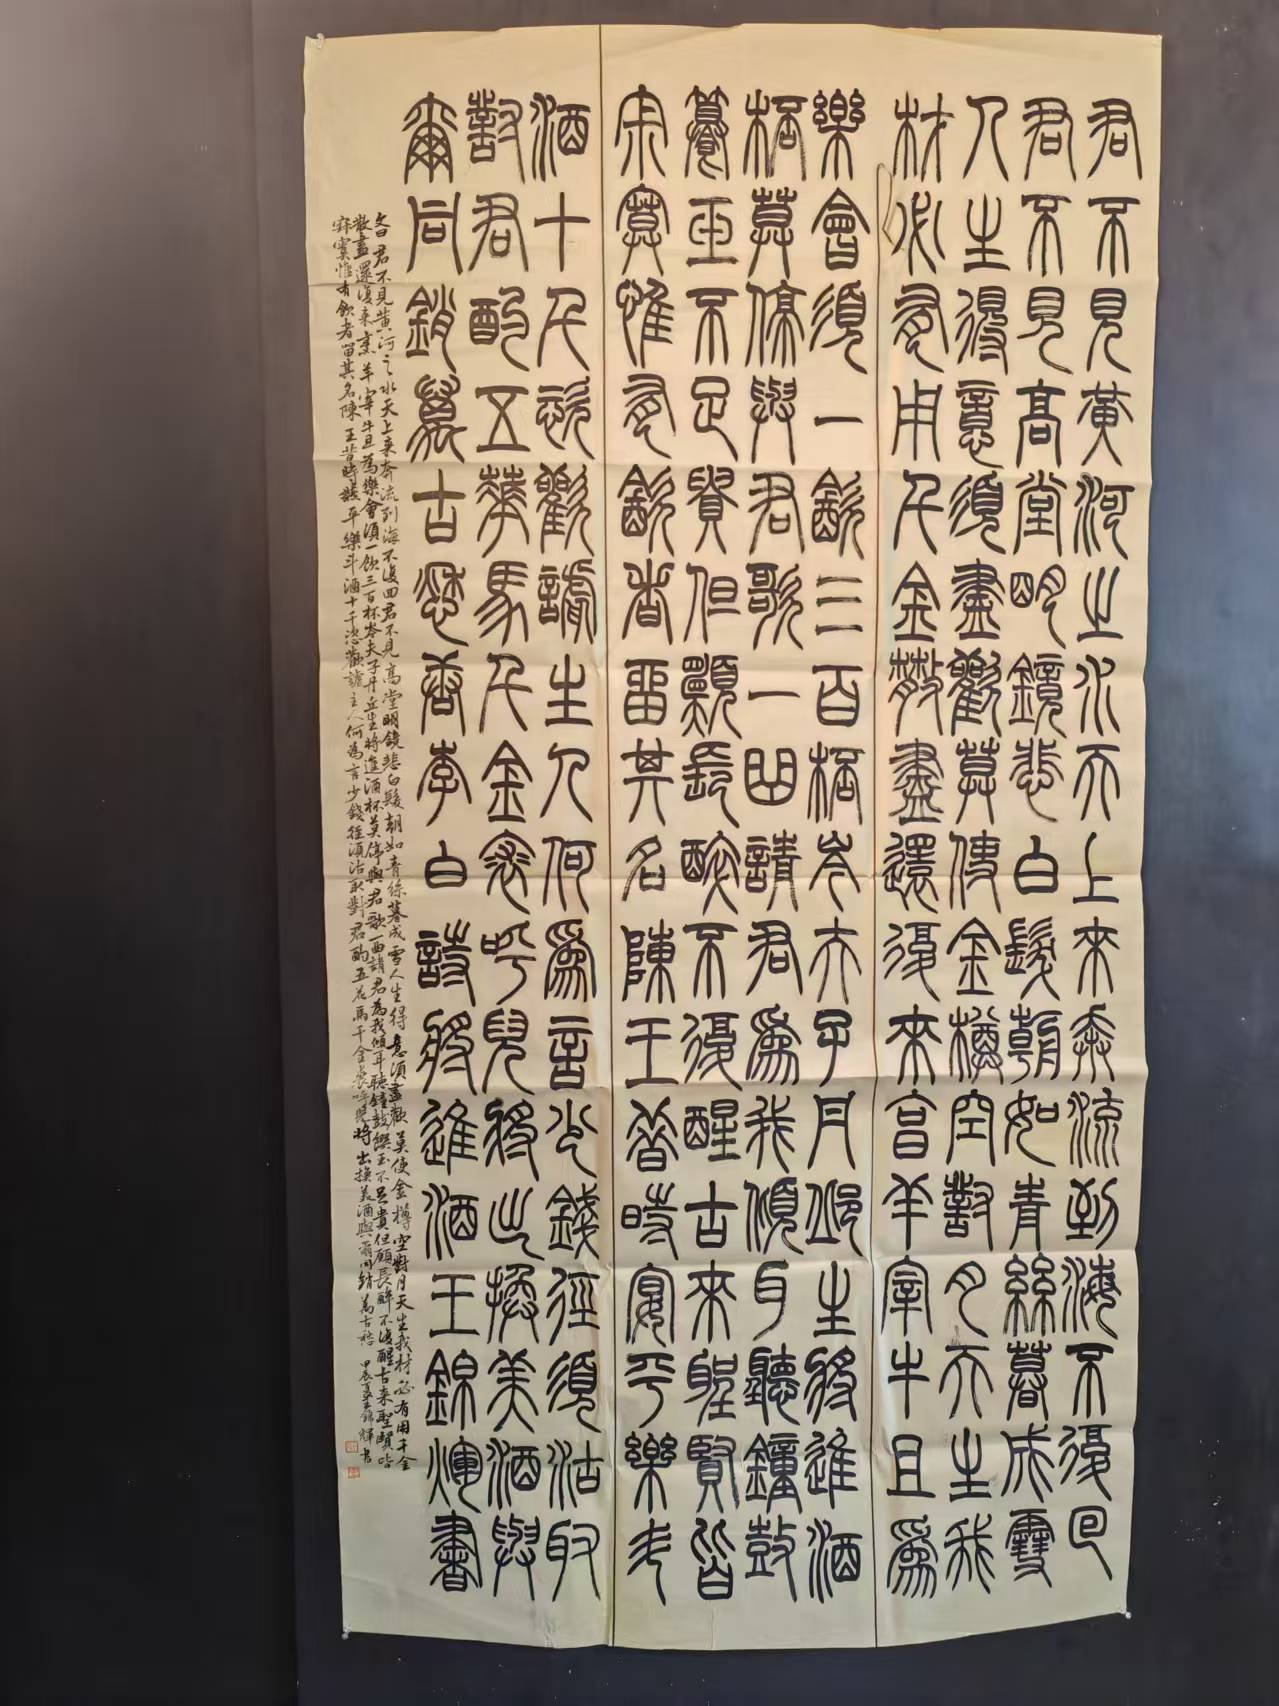 君不見黃河之水天上來奔流到海不復回
君不見高堂明鏡悲白髮朝如青絲暮成雪
人生得意須盡歡莫使金樽空對月天生我
材必有用千金散盡還復來亨羊宰牛且爲
樂會須一飲三百桮岑夫子丹邱生將進酒
桮莫停與君歌一曲請君爲我傾耳聽鐘鼓
籑玉不足貴但願長醉不復醒古來聖賢皆
寂寞惟有飲者留其名陳王昔時宴平樂斗
酒十千恣歡謔主人何爲言少錢徑須沽取
對君酌五華馬千金裘呼兒將出換美酒與
爾同銷萬古愁唐李白詩將進酒王錦煇書
文曰君不見黃河之水天上來奔流到海不復回君不見高堂明鏡悲白髮朝如青絲暮成雪人生得意須盡歡莫使金樽空對月天生我材必有用千金
散盡還復來烹羊宰牛且為樂會須一飲三百杯岑夫子丹丘生將進酒杯莫停與君歌一曲請君為我傾耳聽鐘鼓饌玉不足貴但願長醉不復醒古來聖賢皆
寂寞惟有飲者留其名陳王昔時讌平樂斗酒十千恣歡謔主人何為言少錢徑須沽取對君酌五花馬千金裘呼兒將出換美酒與爾同銷萬古愁 甲辰夏王錦輝書